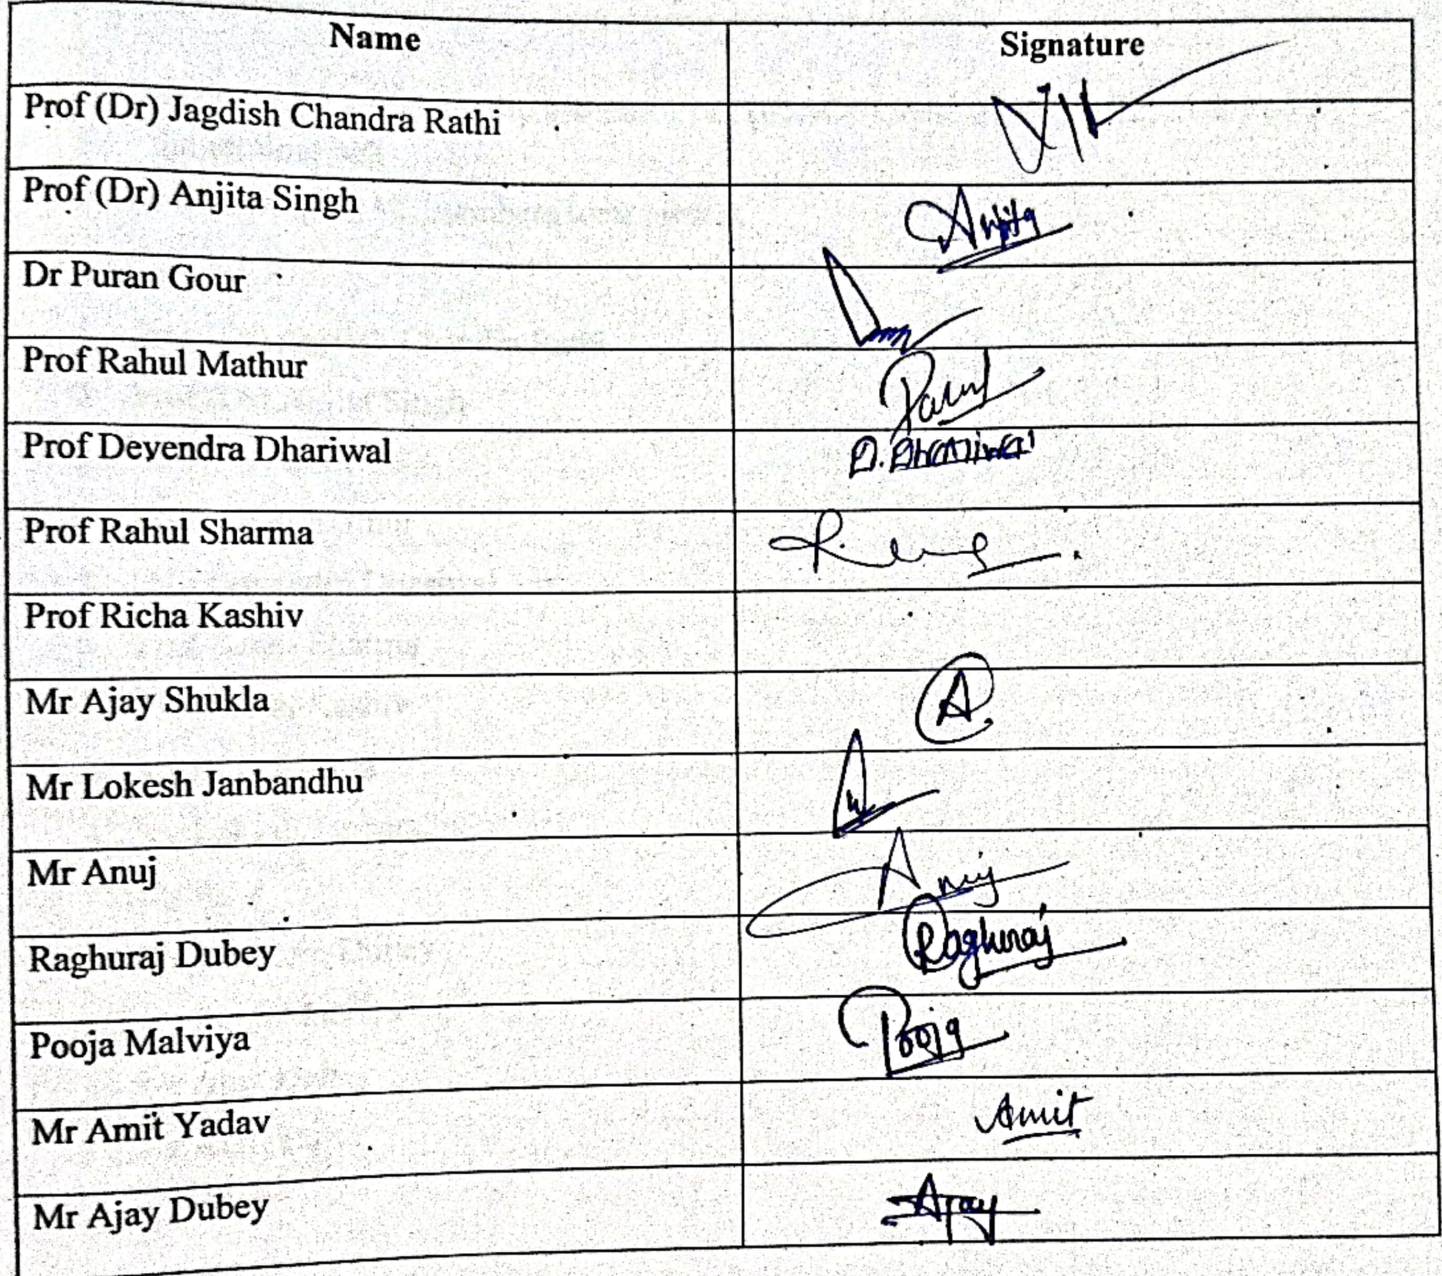 Name Signature
Prof (Dr) Jagdish Chandra Rathi
Prof (Dr) Anjita Singh Anjita
Dr Puran Gour
Prof Rahul Mathur
Prof Deyendra Dhariwal D. Dhariwal
Prof Rahul Sharma
Prof Richa Kashiv
Mr Ajay Shukla A
Mr Lokesh Janbandhu
Mr Anuj Anuj
Raghuraj Dubey Raghuraj
Pooja Malviya Pooja
Mr Amit Yadav Amit
Mr Ajay Dubey Ajay